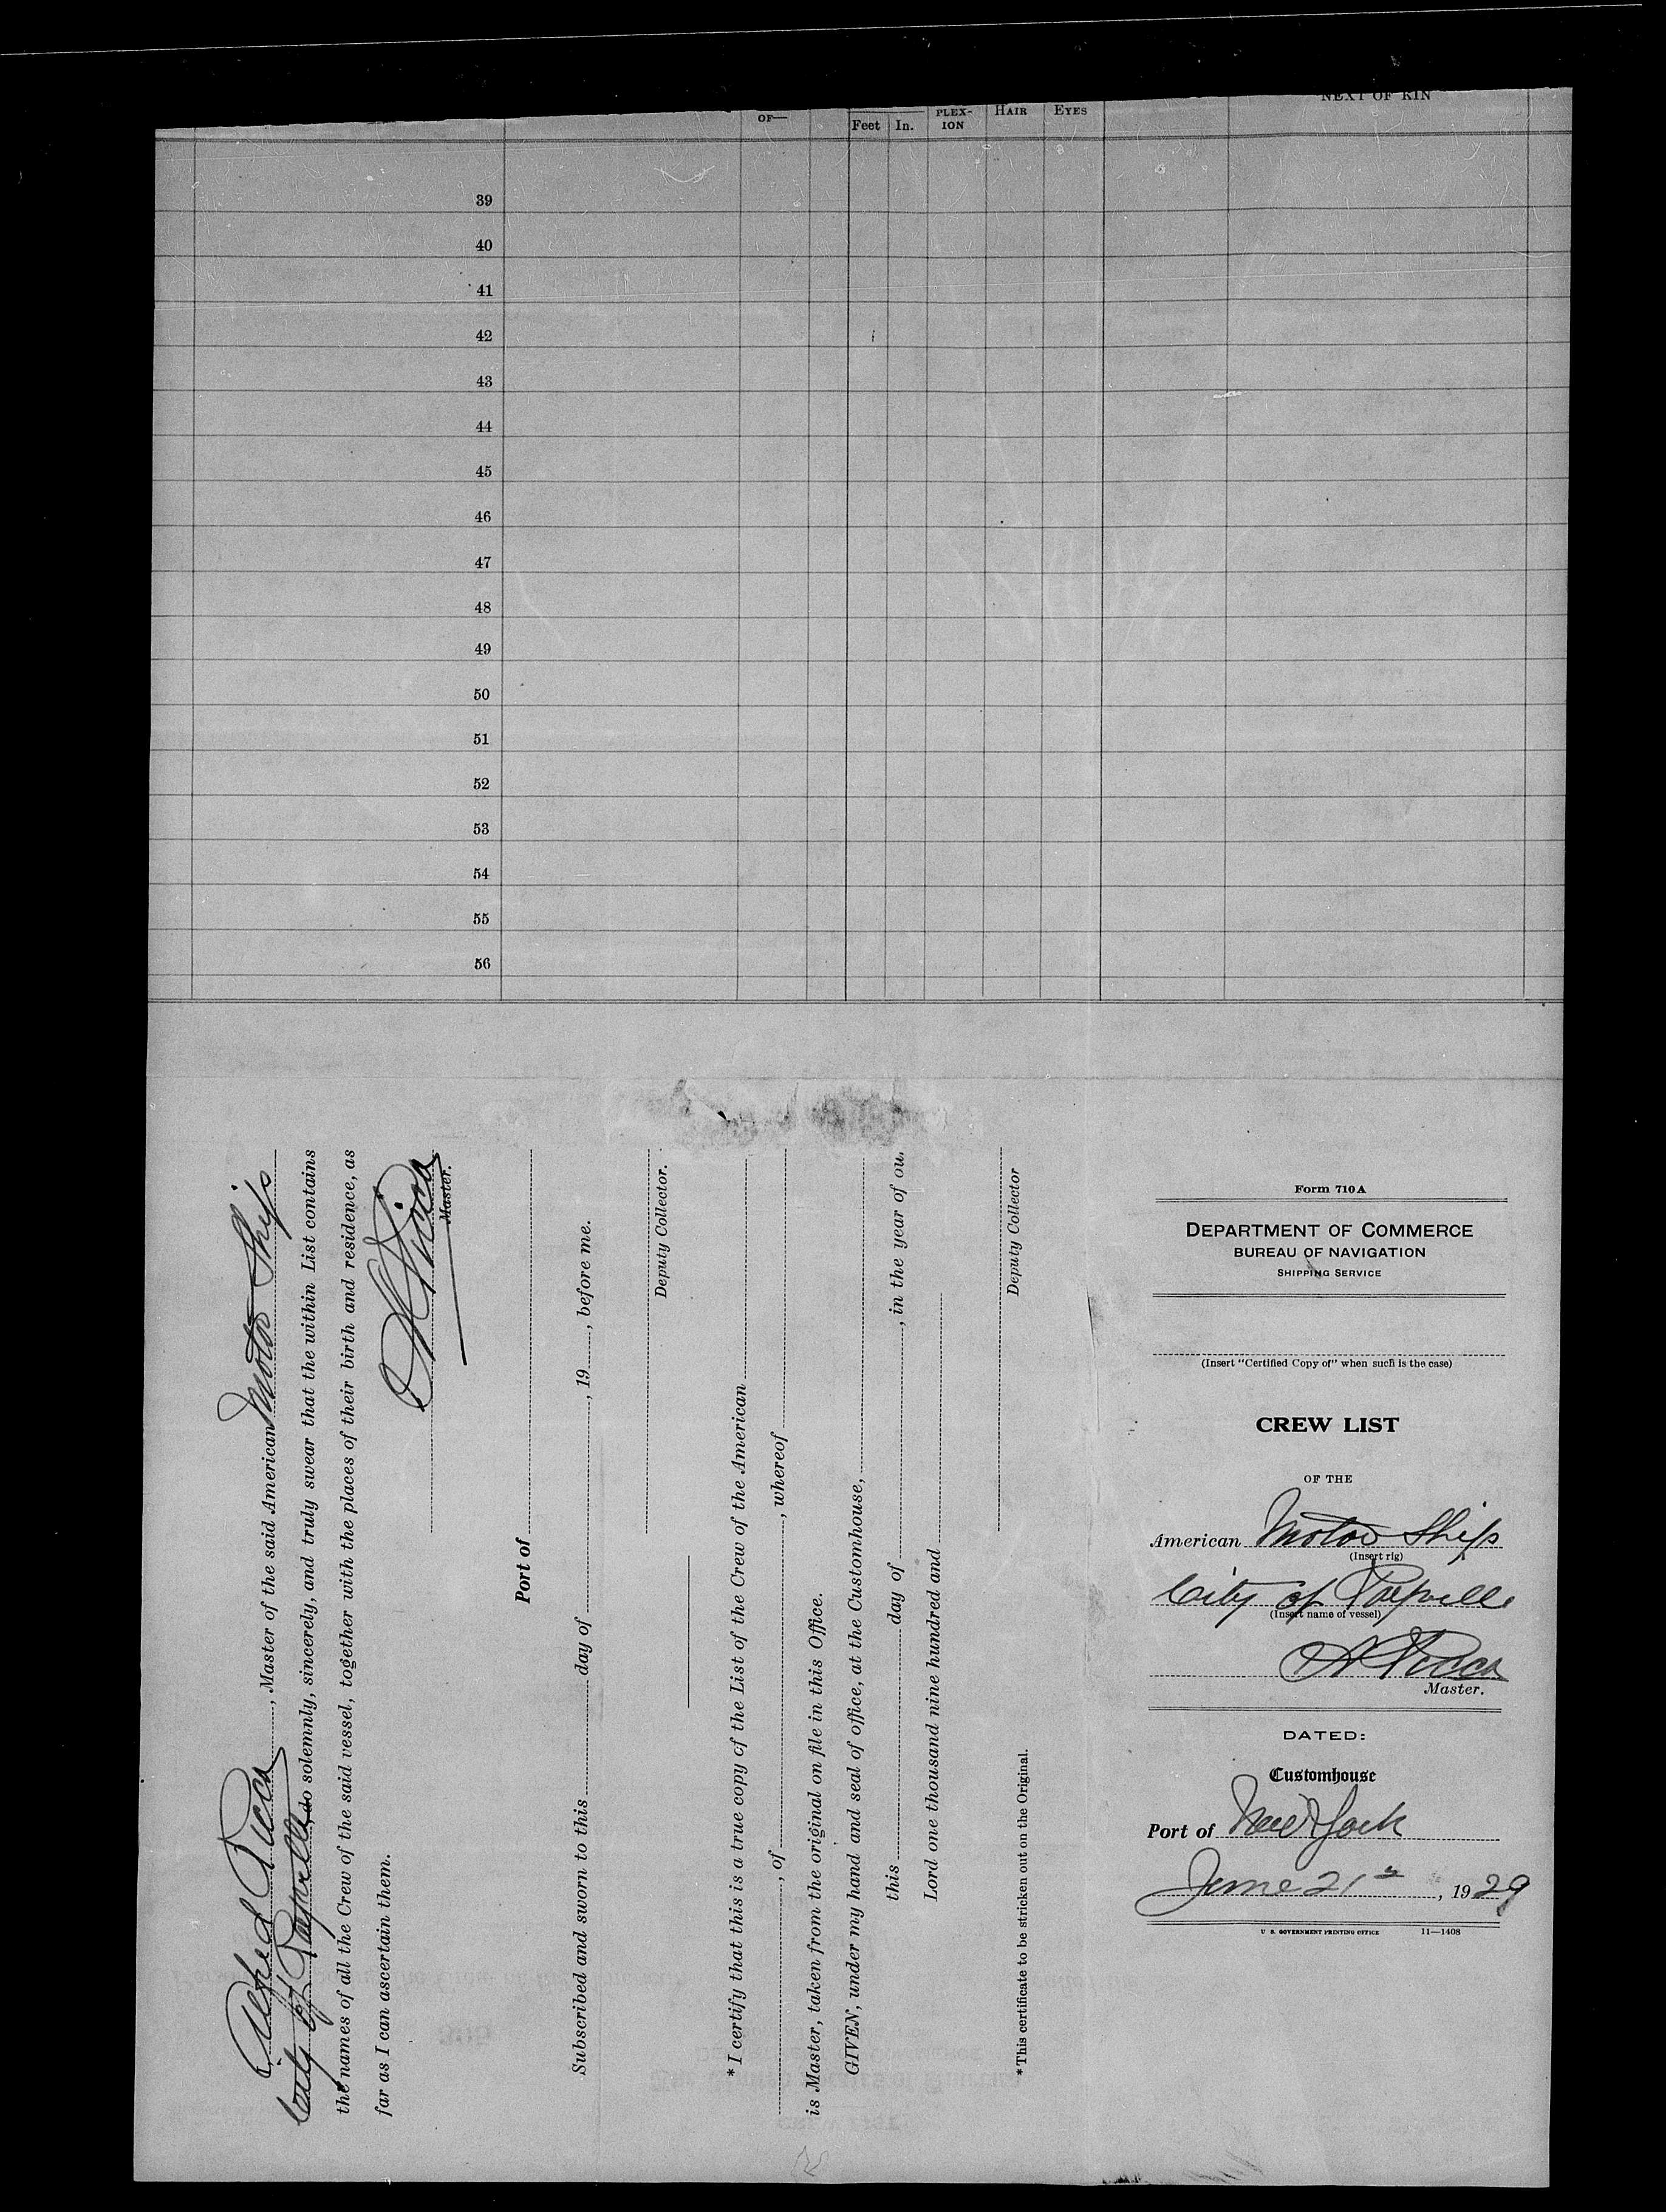 OF—
Feet In. PLEX-ION HAIR EYES NEXT OF KIN
39
40
41
42
43
44
45
46
47
48
49
50
51
52
53
54
55
56
Alfred Pucca, Master of the said American Motor Ship
City of Rayville, do solemnly, sincerely, and truly swear that the within List contains
the names of all the Crew of the said vessel, together with the places of their birth and residence, as
far as I can ascertain them.
A Pucca
Master.
Port of
Subscribed and sworn to this day of , 19 , before me.
Deputy Collector.
*I certify that this is a true copy of the List of the Crew of the American
, of , whereof
is Master, taken from the original on file in this Office.
GIVEN, under my hand and seal of office, at the Customhouse,
this day of , in the year of ou
Lord one thousand nine hundred and
Deputy Collector
*This certificate to be stricken out on the Original.
Form 710 A
DEPARTMENT OF COMMERCE
BUREAU OF NAVIGATION
SHIPPING SERVICE
(Insert "Certified Copy of" when such is the case)
CREW LIST
OF THE
American Motor Ship
(Insert rig)
City of Rayville
(Insert name of vessel)
A Pucca
Master.
DATED:
Customhouse
Port of New York
June 21st, 1929
U. S. GOVERNMENT PRINTING OFFICE 11—1408